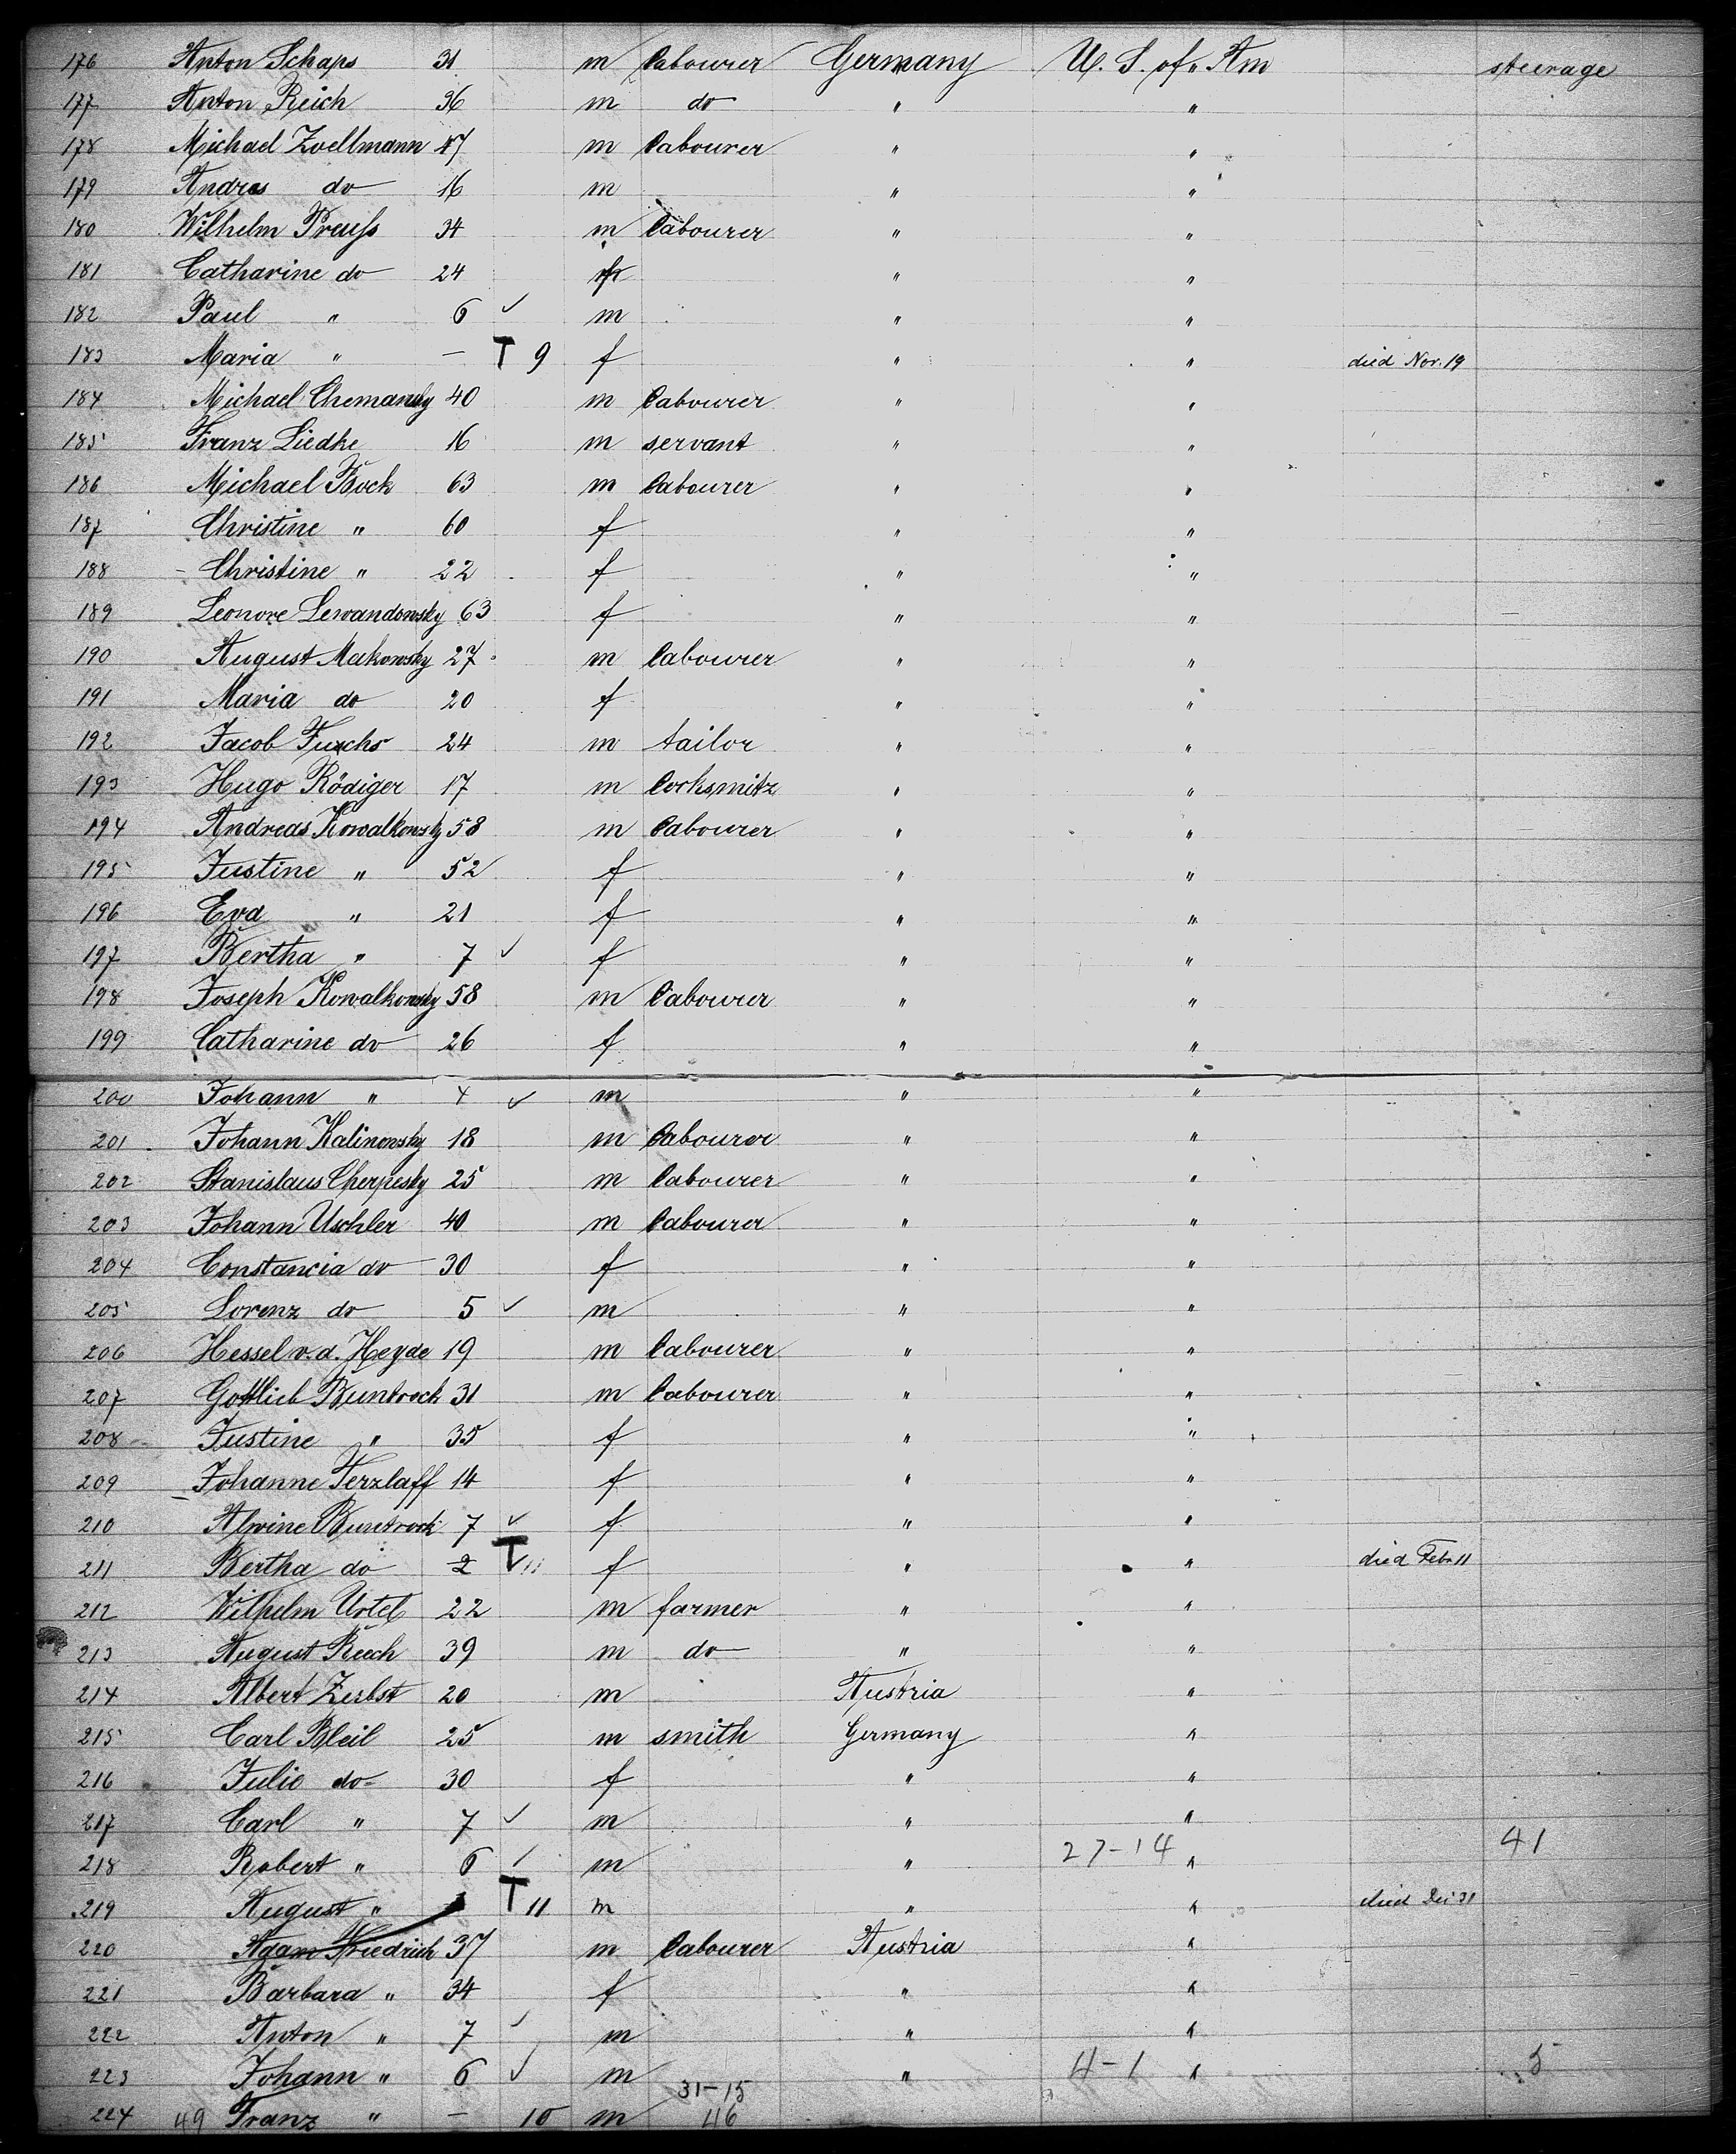 176 Anton Schaps 31 m labourer Germany U. S. of Am steerage
177 Anton Reich 36 m do " "
178 Michael Zoellmann 47 m labourer " "
179 Andres do 16 m " "
180 Wilhelm Preuss 34 m labourer " "
181 Catharine do 24 f " "
182 Paul " 6 ✓ m " "
183 Maria " — T 9 f " " died Nov. 19
184 Michael 40 m labourer " "
185 Franz Liedke 16 m servant " "
186 Michael Bock 63 m labourer " "
187 Christine " 60 f " "
188 Christine " 22 f " "
189 Leonore Lewandowsky 63 f " "
190 August Makowsky 27 m labourer " "
191 Maria do 20 f " "
192 Jacob Fuchs 24 m tailor " "
193 Hugo Rödiger 17 m locksmitz " "
194 Andreas Kowalkowsky 58 m labourer " "
195 Justine " 52 f " "
196 Eva " 21 f " "
197 Bertha " 7 ✓ f " "
198 Joseph Kowalkowsky 58 m labourer " "
199 Catharine do 26 f " "
200 Johann " 4 ✓ m " "
201 Johann Kalinowsky 18 m labourer " "
202 Stanislaus 25 m labourer " "
203 Johann Uschler 40 m labourer " "
204 Constancia do 30 f " "
205 Lorenz do 5 ✓ m " "
206 Hessel v. d. Heyde 19 m labourer " "
207 Gottlieb Buntrock 31 m labourer " "
208 Justine " 35 f " "
209 Johanne Terzlaff 14 f " "
210 Alwine Buntrock 7 ✓ f " "
211 Bertha do 2 T 11 f " " died Febr 11
212 Wilhelm Urtel 22 m farmer " "
213 August 39 m do " "
214 Albert Zerbst 20 m Austria "
215 Carl Bleil 25 m smith Germany "
216 Julie do 30 f " "
217 Carl " 7 ✓ m " "
218 Robert " 6 ✓ m " 27-14 " 41
219 August " T 11 m " " died Dec 31
220 Adam Friedrich 37 m labourer Austria "
221 Barbara " 34 f " "
222 Anton " 7 ✓ m " "
223 Johann " 6 ✓ m " 4-1 " 5
31-15
224 49 Franz " — 10 m 46